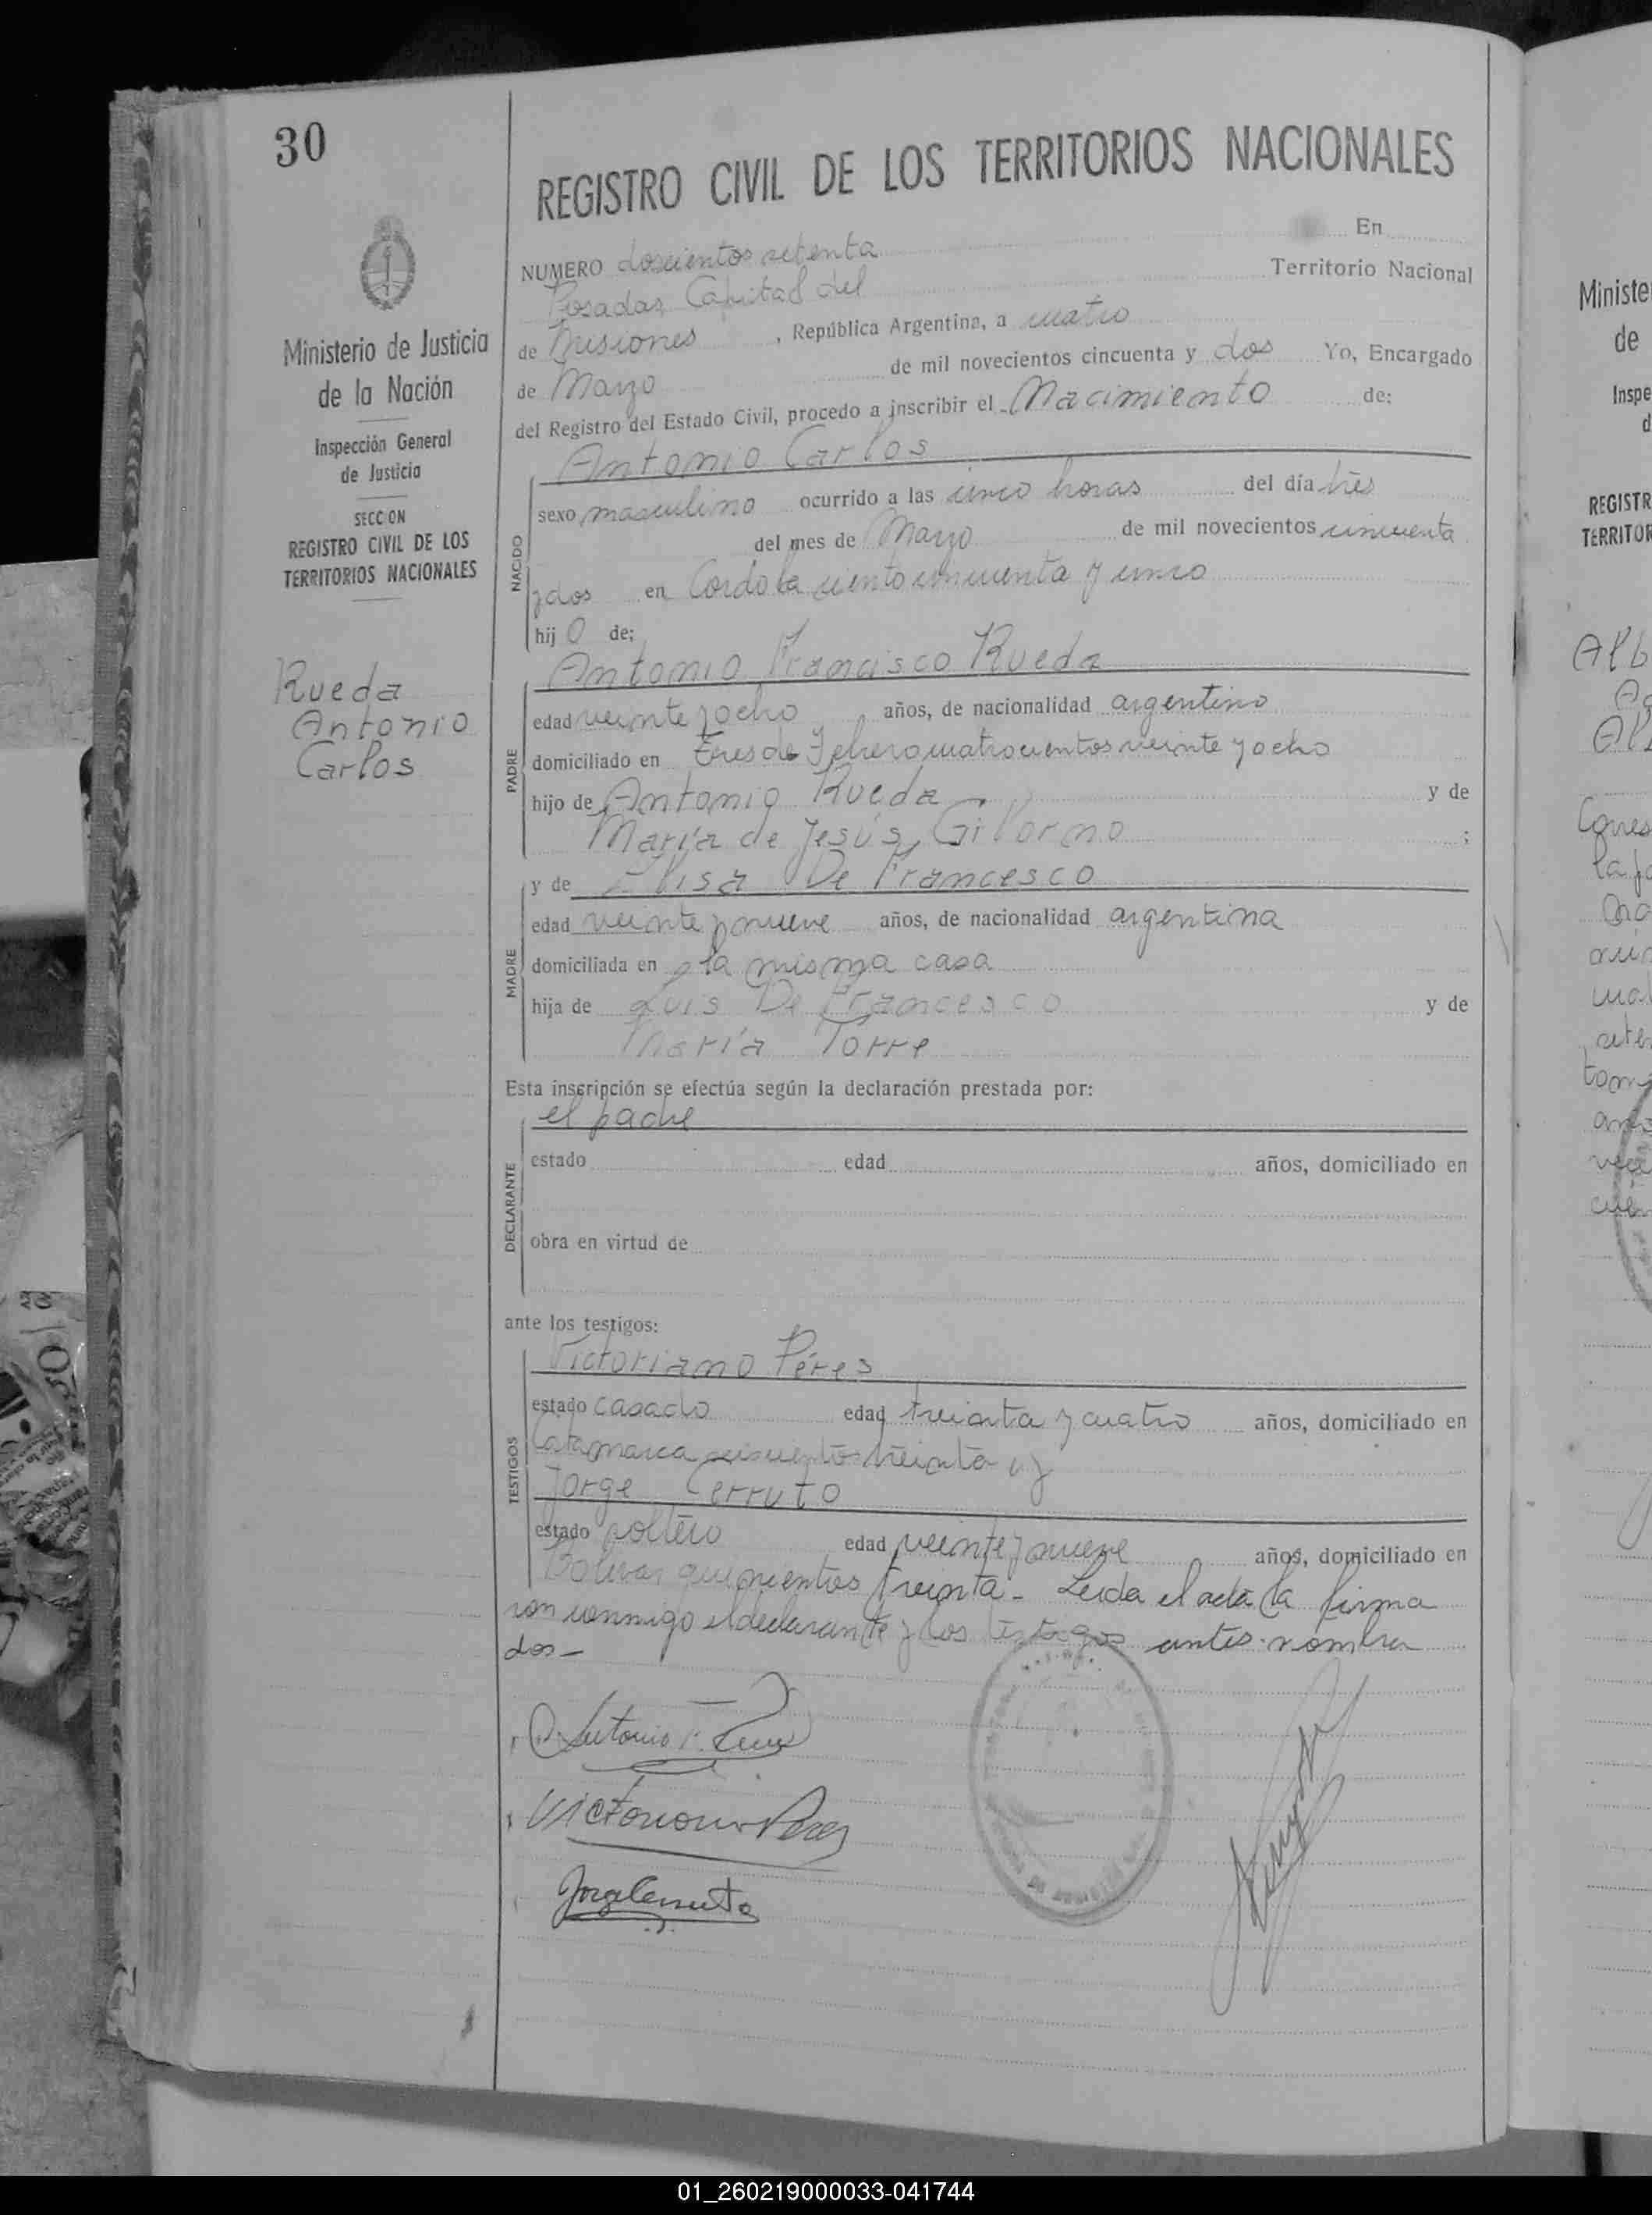 30
REGISTRO CIVIL DE LOS TERRITORIOS NACIONALES
En
NUMERO doscientos setenta
Territorio Nacional
Posadas, Capital del
de Misiones, República Argentina, a cuatro
de Marzo de mil novecientos cincuenta y dos Yo, Encargado
del Registro del Estado Civil, procedo a inscribir el Nacimiento de:
Ministerio de Justicia
de la Nación
Inspección General
de Justicia
SECCION
REGISTRO CIVIL DE LOS
TERRITORIOS NACIONALES
Rueda
Antonio
Carlos
NACIDO
Antonio Carlos
sexo masculino ocurrido a las cinco horas del día tres
del mes de Marzo de mil novecientos cincuenta
y dos en Cordoba ciento cincuenta y cinco
hij o de:
PADRE
Antonio Francisco Rueda
edad veinte y ocho años, de nacionalidad argentino
domiciliado en Tres de Febrero cuatrocientos veinte y ocho
hijo de Antonio Rueda y de
María de Jesús Gilormo;
MADRE
y de Elisa De Francesco
edad veinte y nueve años, de nacionalidad argentina
domiciliada en la misma casa
hija de Luis De Francesco y de
María Torre
Esta inscripción se efectúa según la declaración prestada por:
DECLARANTE
el padre
estado edad años, domiciliado en
obra en virtud de
ante los testigos:
TESTIGOS
Victoriano Péres
estado casado edad treinta y cuatro años, domiciliado en
Catamarca treinta
Jorge Cerruto
estado soltero edad veinte y nueve años, domiciliado en
Bolivar quinientos treinta - Leida el acta la firma
ron conmigo el declarante y los testigos antes nombra
dos -
Antonio F. Rueda
Victoriano Perez
Jorge Cerruto
Ministe
de
Inspe
d
REGISTR
TERRITOR
01_260219000033-041744